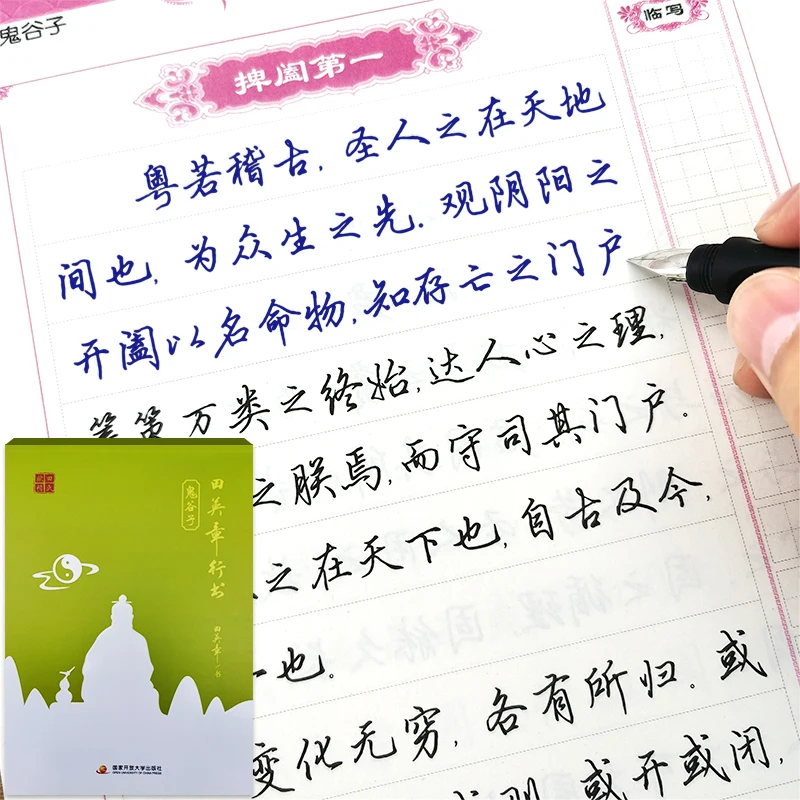 鬼谷子
临写
捭阖第一
粤若稽古，圣人之在天地
间也，为众生之先。观阴阳之
开阖以名命物，知存亡之门户
万类之终始，达人心之理，
之朕焉，而守司其门户。
之在天下也，自古及今，
一也。
变化无穷，各有所归。或
或开或闭，
田英章行书
鬼谷子
田英章书
国家开放大学出版社
OPEN UNIVERSITY OF CHINA PRESS